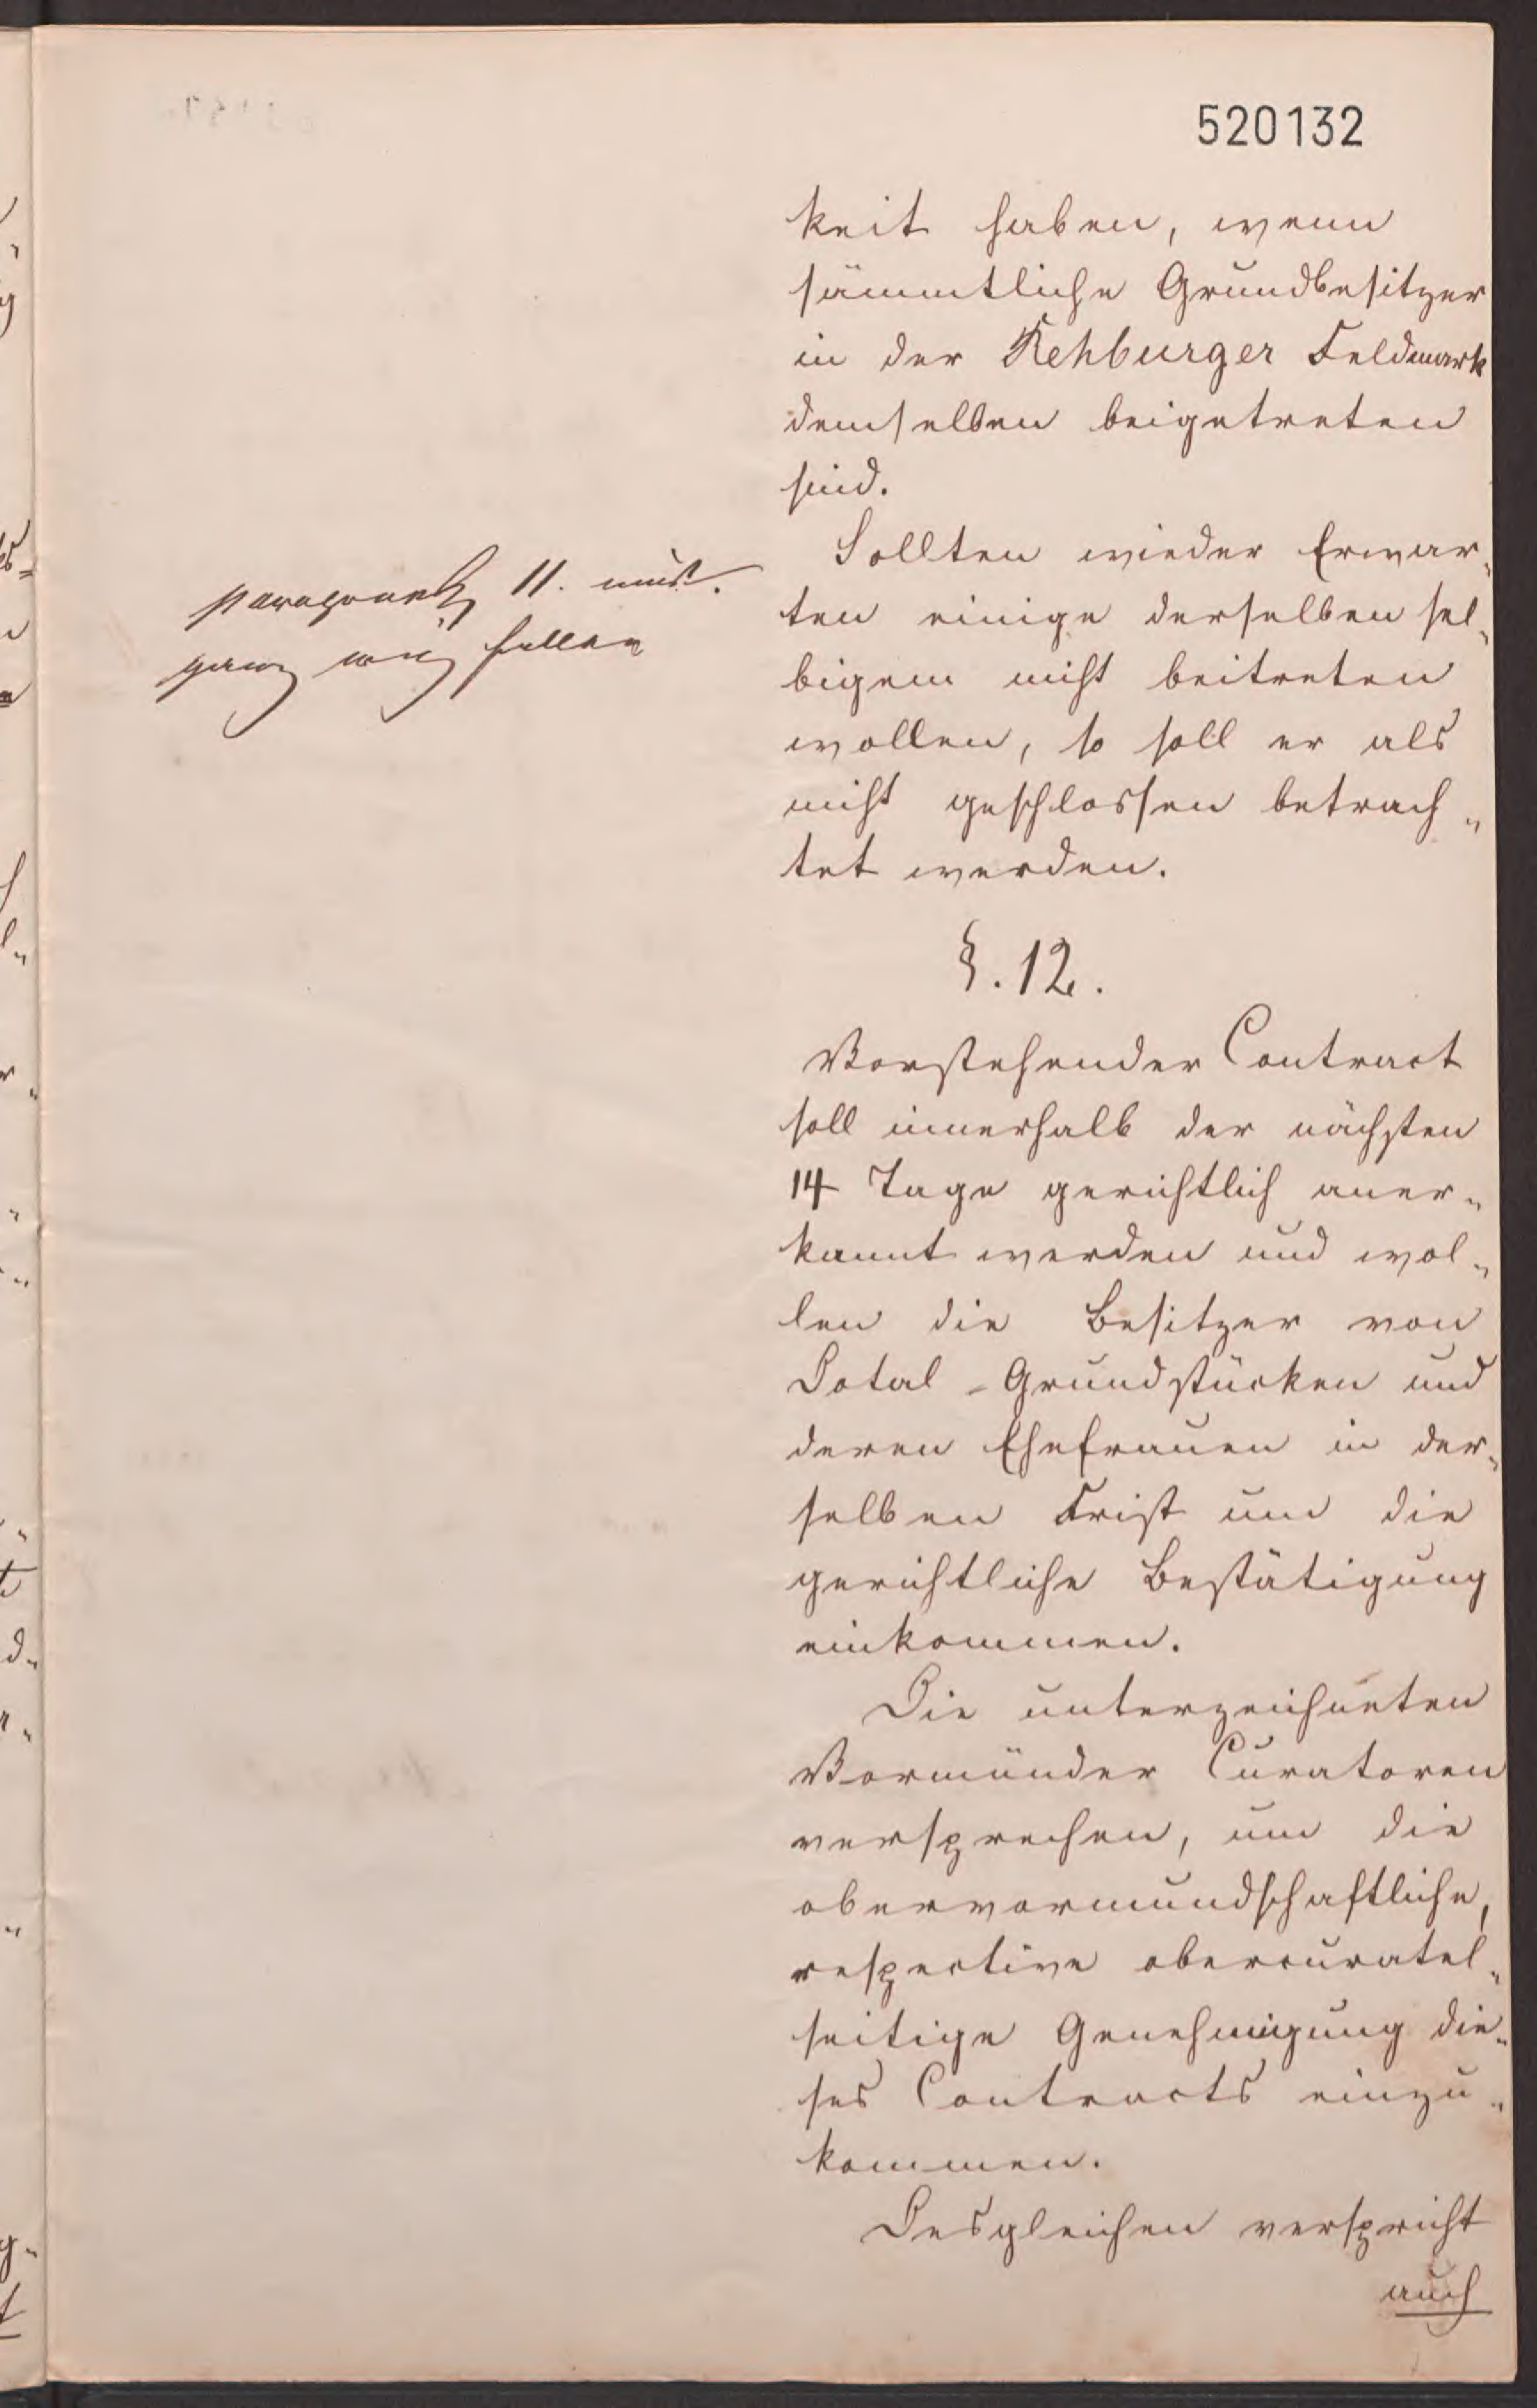 520132
keit haben, wenn
sämmtliche Grundbesitzer
in der Rehburger Feldmark
demselben beigetreten
sind.
Sollten wieder Erwar„
ten einige derselben sel„
bigem nicht beitreten
wollen, so soll er als
nicht geschlossen betrach„
tet werden.
paragrauph 11. muß
ganz weg fallen
§. 12.
Vorstehender Contract
soll innerhalb der nächsten
14 Tage gerichtlich aner„
kannt werden und wol„
len die Besitzer von
Dotal-Grundstücken und
deren Ehefrauen in der„
selben Frist um die
gerichtliche Bestätigung
einkommen.
Die unterzeichneten
Vormünder Curatoren
versprechen, um die
obervormundschaftliche,
respective obercuratel„
seitige Genehmigung die„
ses Contracts einzu„
kommen.
Desgleichen verspricht
auch